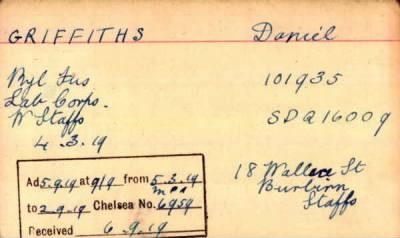 GRIFFITHS Daniel
Ryl Fus 101935
Lab Corps. SDQ16009
W Staffs
4.3.19
18 Wallace St
Staffs
Ad 5.9.19 at 9/9 from 5.3.19
to 2.9.19 Chelsea No. 6959
Received 6.9.19